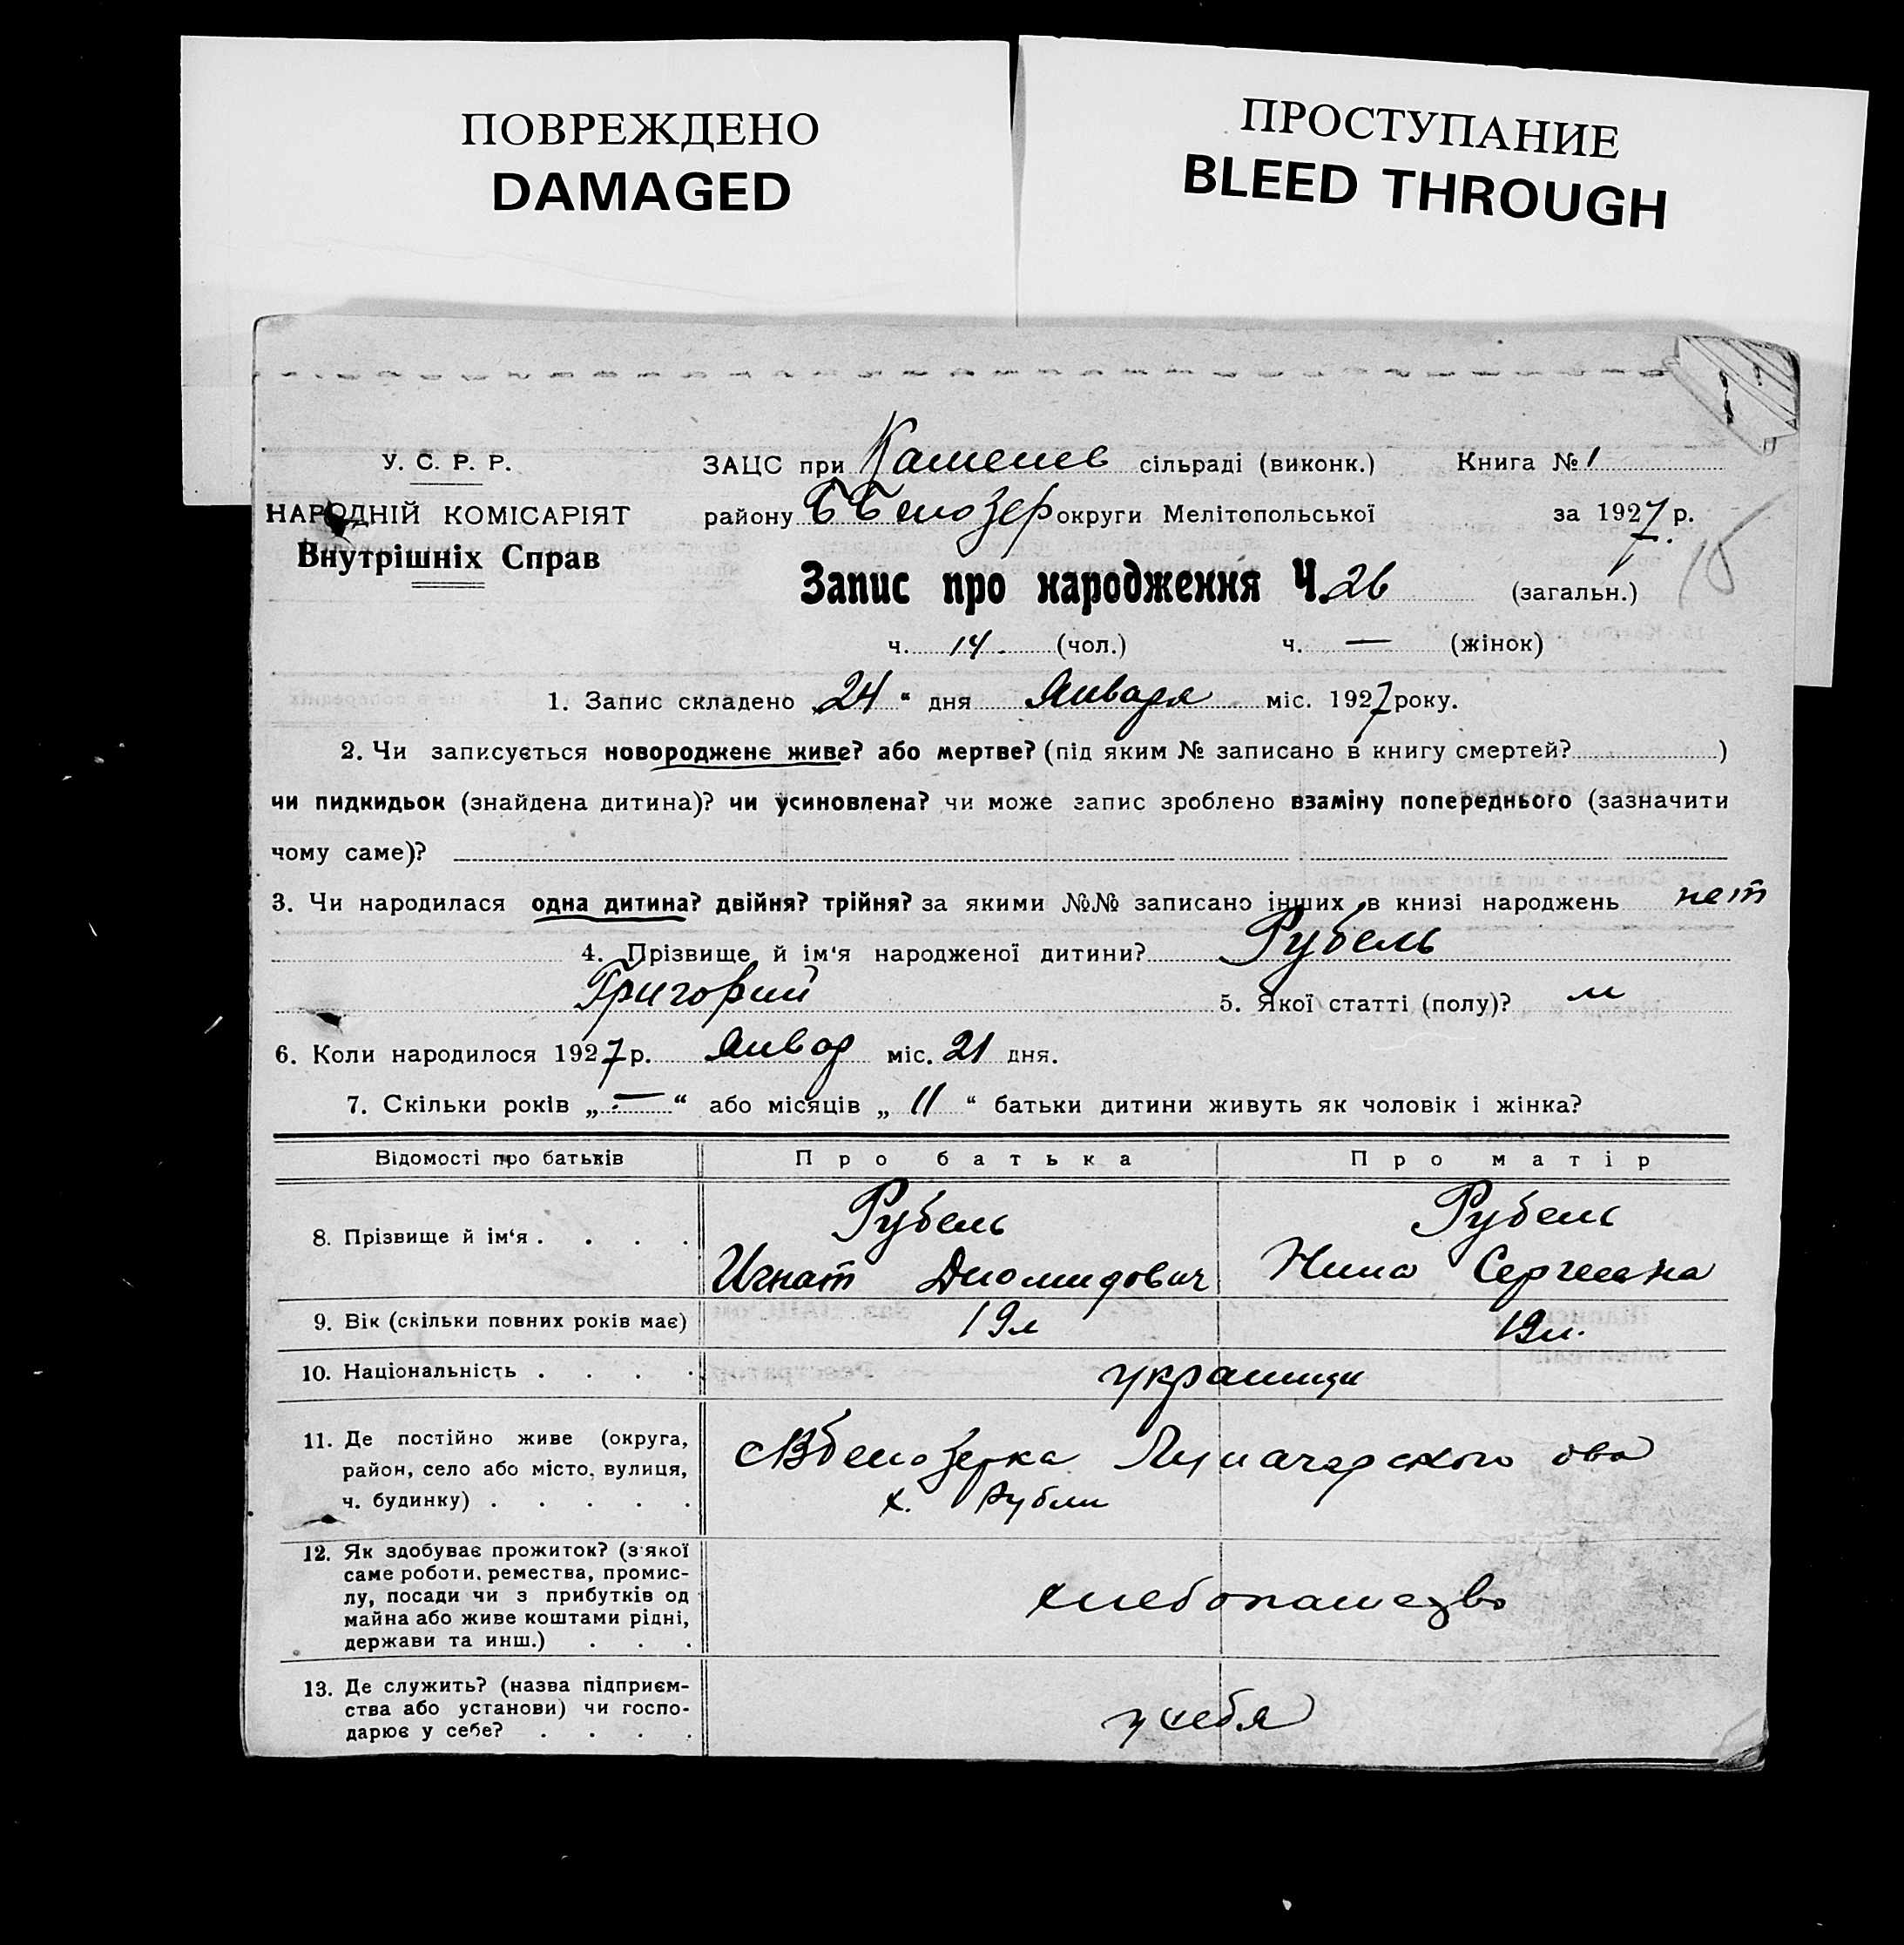 ПОВРЕЖДЕНО
DAMAGED
ПРОСТУПАНИЕ
BLEED THROUGH
У. С. Р. Р.
НАРОДНІЙ КОМІСАРІЯТ
Внутрішніх Справ
ЗАЦС при Каменев сільраді (виконк.) Книга № 1
району ББелозер округи Мелітопольської за 1927 р.
Запис про народження Ч. 26 (загальн.)
18
ч. 14. (чол.) ч. — (жінок)
1. Запис складено 24 “ дня Января міс. 1927 року.
2. Чи записується новороджене живе? або мертве? (під яким № записано в книгу смертей? )
чи пидкидьок (знайдена дитина)? чи усиновлена? чи може запис зроблено взаміну попереднього (зазначити
чому саме)?
3. Чи народилася одна дитина? двійня? трійня? за якими №№ записано інших в книзі народжень нет
4. Прізвище й ім‘я народженої дитини? Рубель
Григорий 5. Якої статті (полу)? м
6. Коли народилося 1927 р. Январ міс. 21 дня.
7. Скільки років „ — “ або місяців „ 11 “ батьки дитини живуть як чоловік і жінка?
Відомості про батьків Про батька Про матір
8. Прізвище й ім‘я . . . . Рубель Рубель
Игнат Диомидович Нина Сергеевна
9. Вік (скільки повних років має) 19л 19л.
10. Національність . . . . украинци
11. Де постійно живе (округа,
район, село або місто, вулиця,
ч. будинку) . . . . .
Вбелозерка Луначарского ова
х. Рубли
12. Як здобуває прожиток? (з якої
саме роботи, ремества, промис-
лу, посади чи з прибутків од
майна або живе коштами рідні,
держави та инш.) . . .
хлебопашество
13. Де служить? (назва підприєм-
ства або установи) чи госпо-
дарює у себе? . . . .
у себя